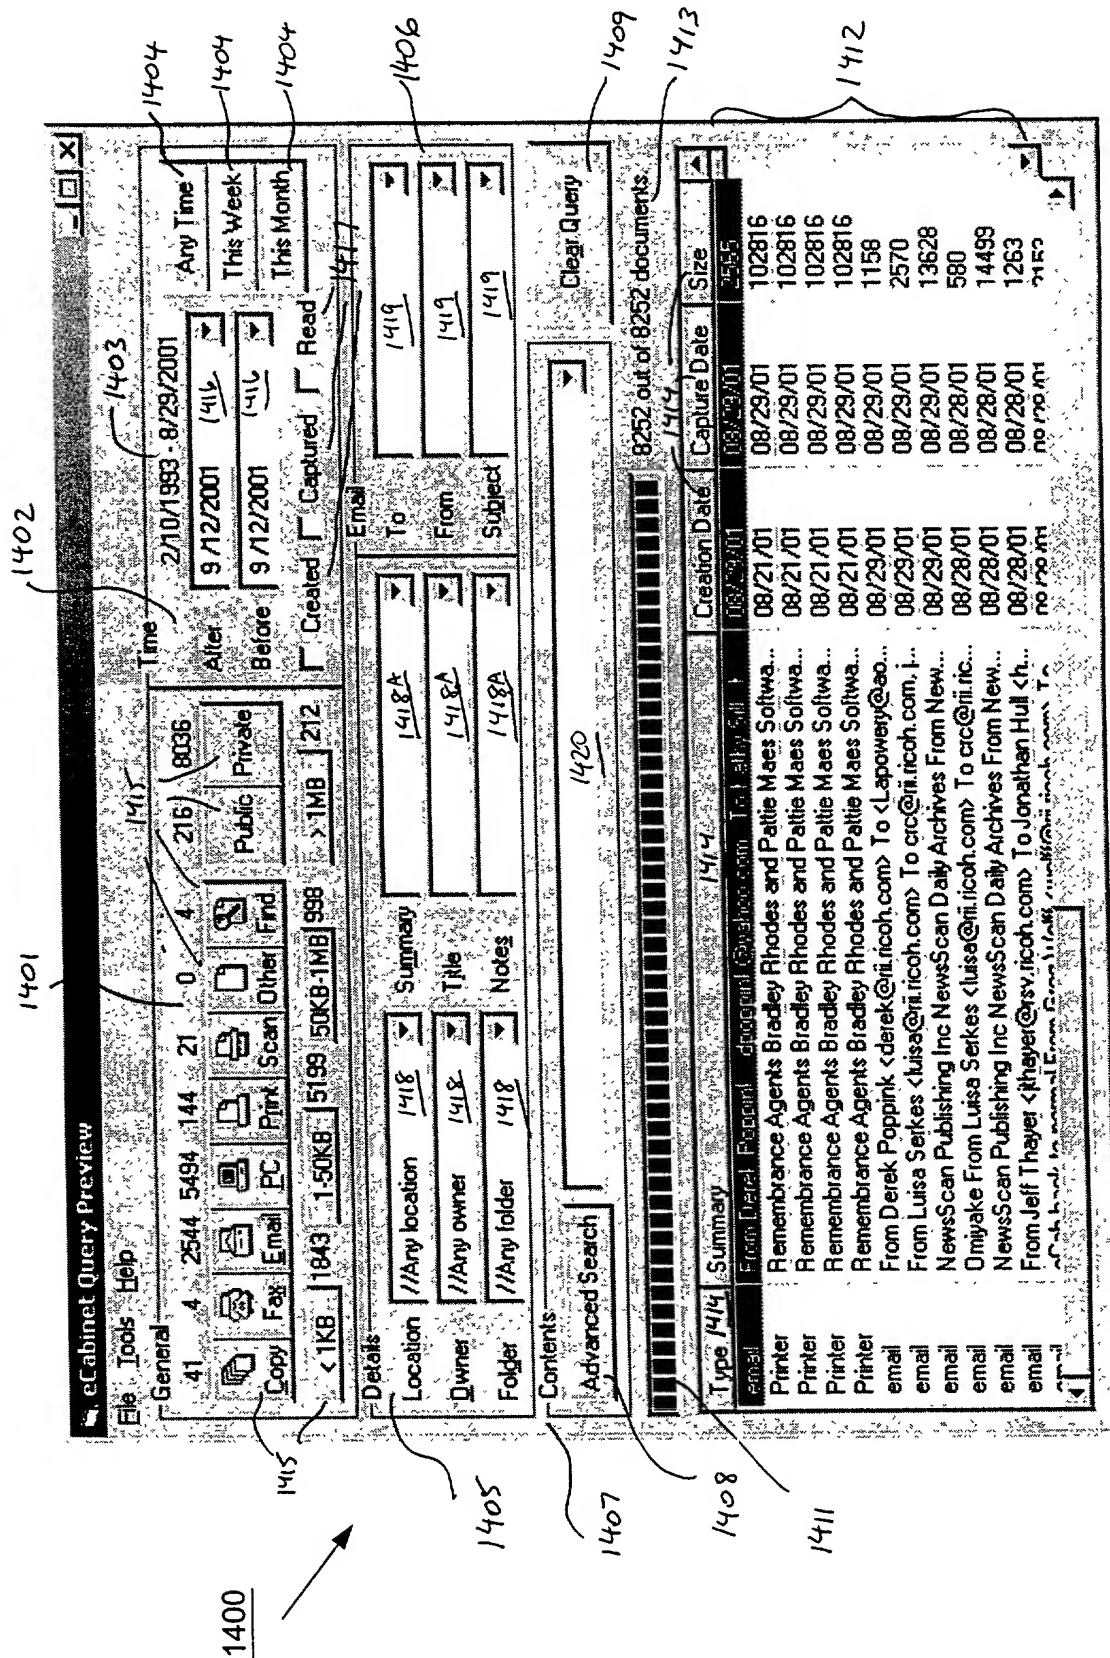 1400
1401
1402
1403
1404
1404
1404
1405
1406
1407
1408
1409
1411
1412
1413
1415
1415
1417
eCabinet Query Preview
File Tools Help
General
41 4 2544 5494 144 21 0 4 216 8036
Copy Fax Email PC Print Scan Other Find Public Private
< 1KB 1843 1-50KB 5199 50KB-1MB 998 > 1MB 212
Time
2/10/1993 - 8/29/2001
After 9/12/2001 1416
Before 9/12/2001 1416
Any Time
This Week
This Month
Created Captured Read
Details
Location //Any location 1418
Owner //Any owner 1418
Folder //Any folder 1418
Summary 1418A
Title 1418A
Notes 1418A
Email
To 1419
From 1419
Subject 1419
Contents
Advanced Search 1420
Clear Query
8252 out of 8252 documents.
Type 1414 Summary 1414 Creation Date 1414 Capture Date Size
Printer Remembrance Agents Bradley Rhodes and Pattie Maes Softwa... 08/21/01 08/29/01 102816
Printer Remembrance Agents Bradley Rhodes and Pattie Maes Softwa... 08/21/01 08/29/01 102816
Printer Remembrance Agents Bradley Rhodes and Pattie Maes Softwa... 08/21/01 08/29/01 102816
Printer Remembrance Agents Bradley Rhodes and Pattie Maes Softwa... 08/21/01 08/29/01 102816
email From Derek Poppink <derek@rii.ricoh.com> To <Lapowery@ao... 08/29/01 08/29/01 1158
email From Luisa Serkes <luisa@rii.ricoh.com> To crc@rii.ricoh.com, j... 08/29/01 08/29/01 2570
email NewsScan Publishing Inc NewsScan Daily Archives From New... 08/29/01 08/29/01 13628
email Omiyake From Luisa Serkes <luisa@rii.ricoh.com> To crc@rii.ric... 08/28/01 08/28/01 580
email NewsScan Publishing Inc NewsScan Daily Archives From New... 08/28/01 08/28/01 14499
email From Jeff Thayer <jthayer@rsv.ricoh.com> To Jonathan Hull <h... 08/28/01 08/28/01 1263